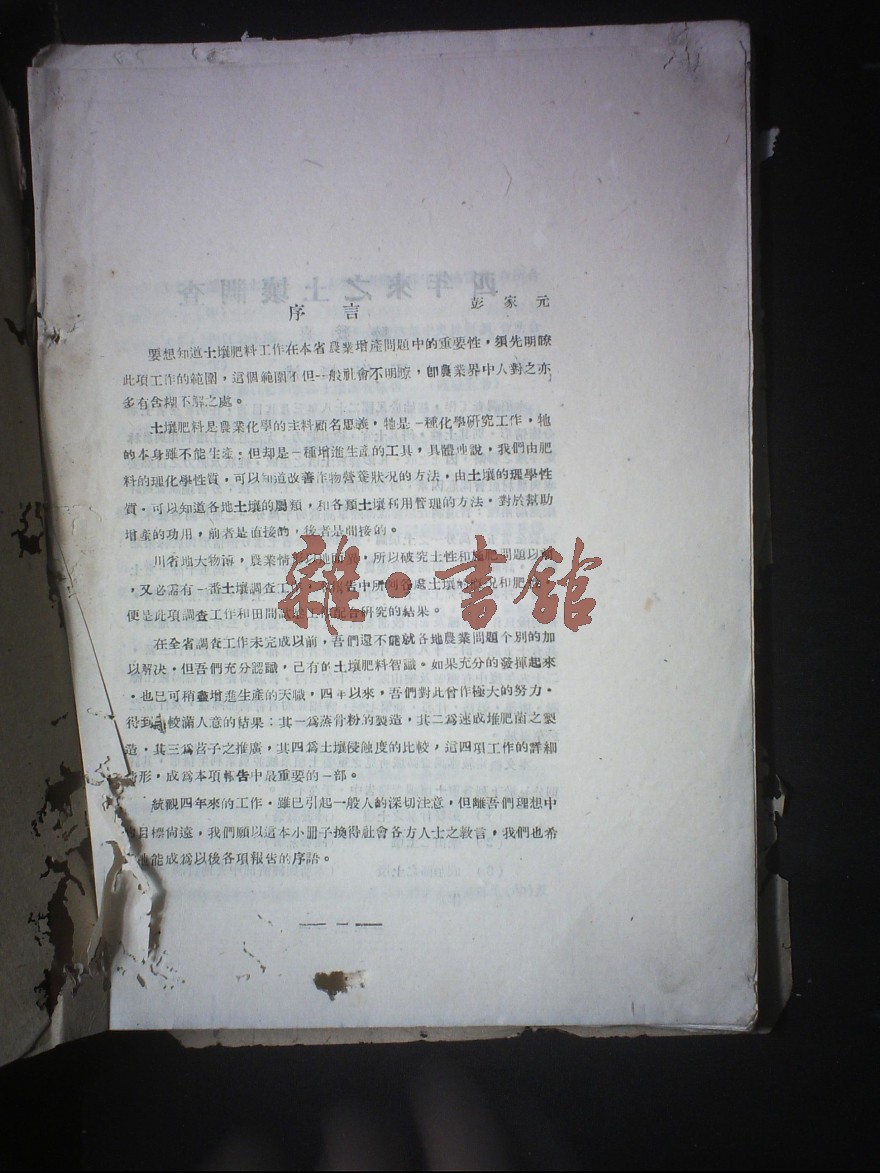 序言
彭家元
要想知道土壤肥料工作在本省農業增產問題中的重要性，須先明瞭
此項工作的範圍，這個範圍不但一般社會不明瞭，卽農業界中人對之亦
多有含糊不解之處。
土壤肥料是農業化學的主料顧名思義，牠是一種化學研究工作，牠
的本身雖不能生產，但却是一種增進生產的工具，具體地說，我們由肥
料的理化學性質，可以知道改善作物營養狀况的方法，由土壤的理學性
質，可以知道各地土壤的屬類，和各類土壤利用管理的方法，對於幫助
增產的功用，前者是直接的，後者是間接的。
川省地大物博，農業情形以地而異，所以硏究土性和施肥問題以前
，又必需有一番土壤調查工作，報告中所列各處土壤的性况和肥
便是此項調查工作和田間試驗工作配合研究的結果。
在全省調查工作未完成以前，吾們還不能就各地農業問題个別的加
以解决，但吾們充分認識，已有的土壤肥料智識。如果充分的發揮起來
，也已可稍盡增進生產的天職，四年以來，吾們對此曾作極大的努力。
得到較滿人意的結果：其一爲蒸骨粉的製造，其二爲速成堆肥菌之製
造，其三爲苕子之推廣，其四爲土壤侵蝕度的比較，這四項工作的詳細
情形，成爲本項報告中最重要的一部。
統觀四年來的工作，雖已引起一般人的深切注意，但離吾們理想中
的目標尙遠，我們願以這本小册子換得社會各方人士之教言，我們也希
地能成爲以後各項報告的序語。
一
雜·書館
四年來之土壤調查